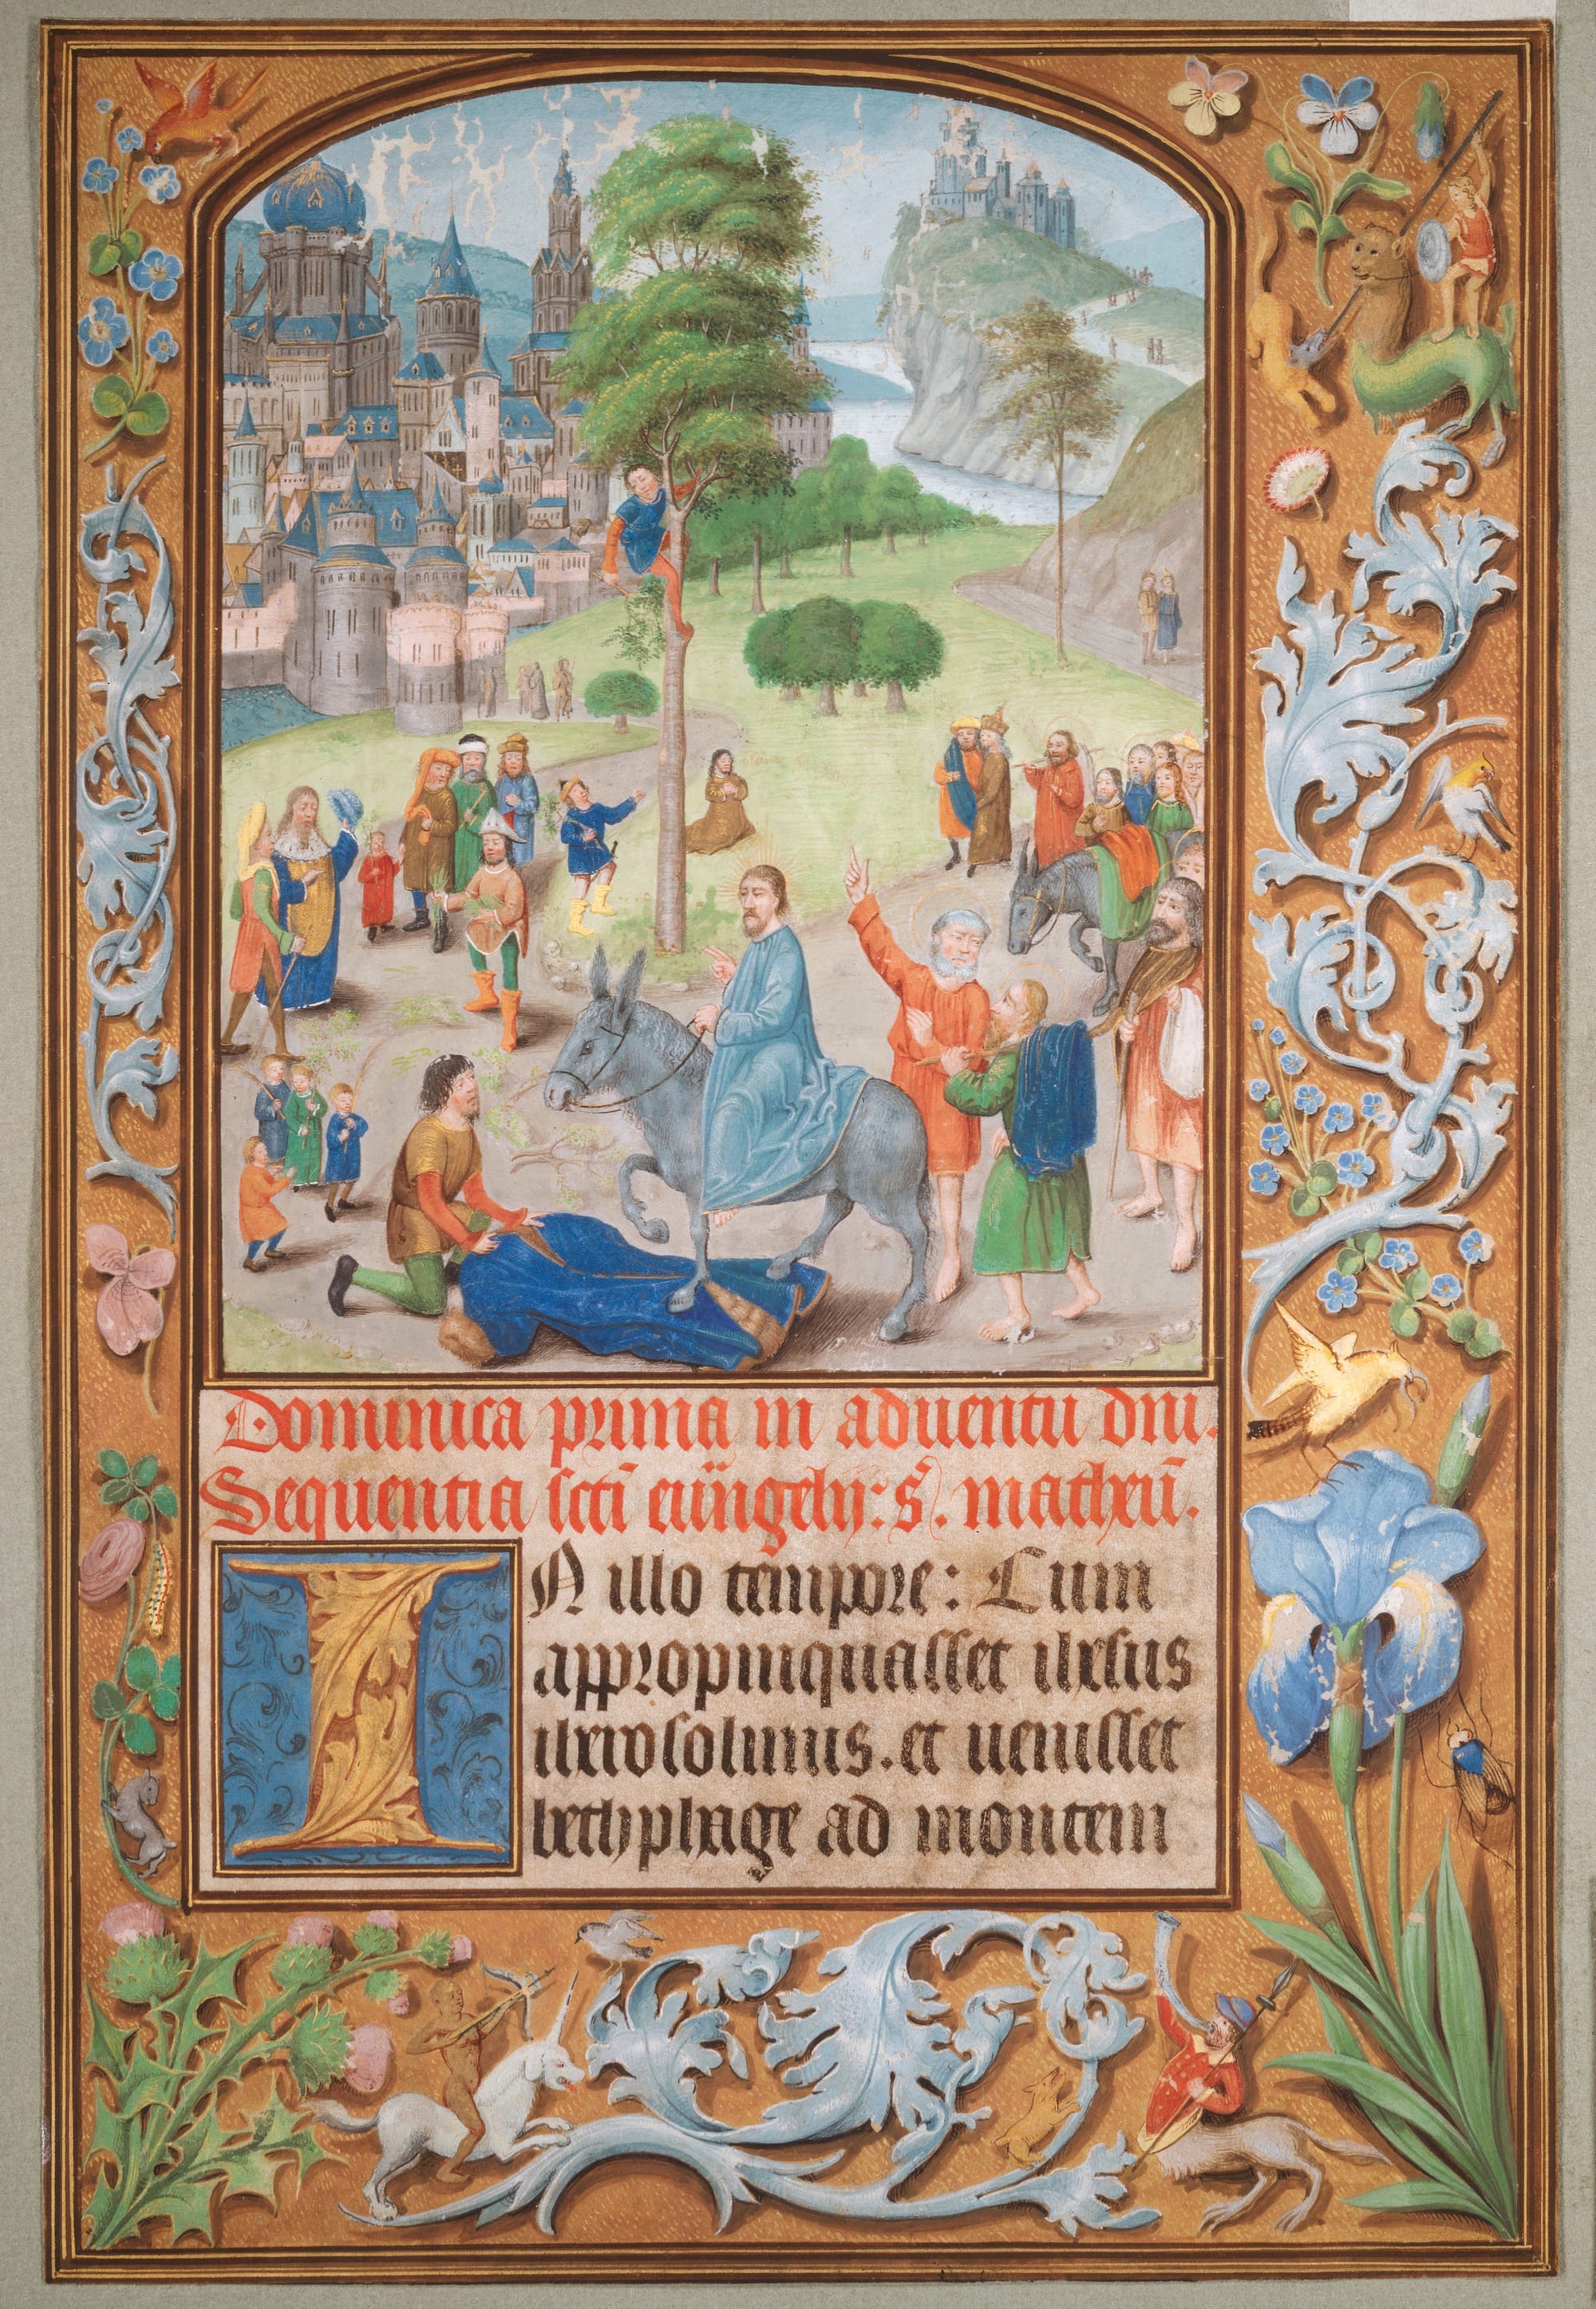 Dominica prima in aduentu dni.
Sequentia scti euangelij: s. matheū.
IN illo tempore: Cum
appropinquasset ihesus
iherosolimis. et uenisset
bethphage ad montem